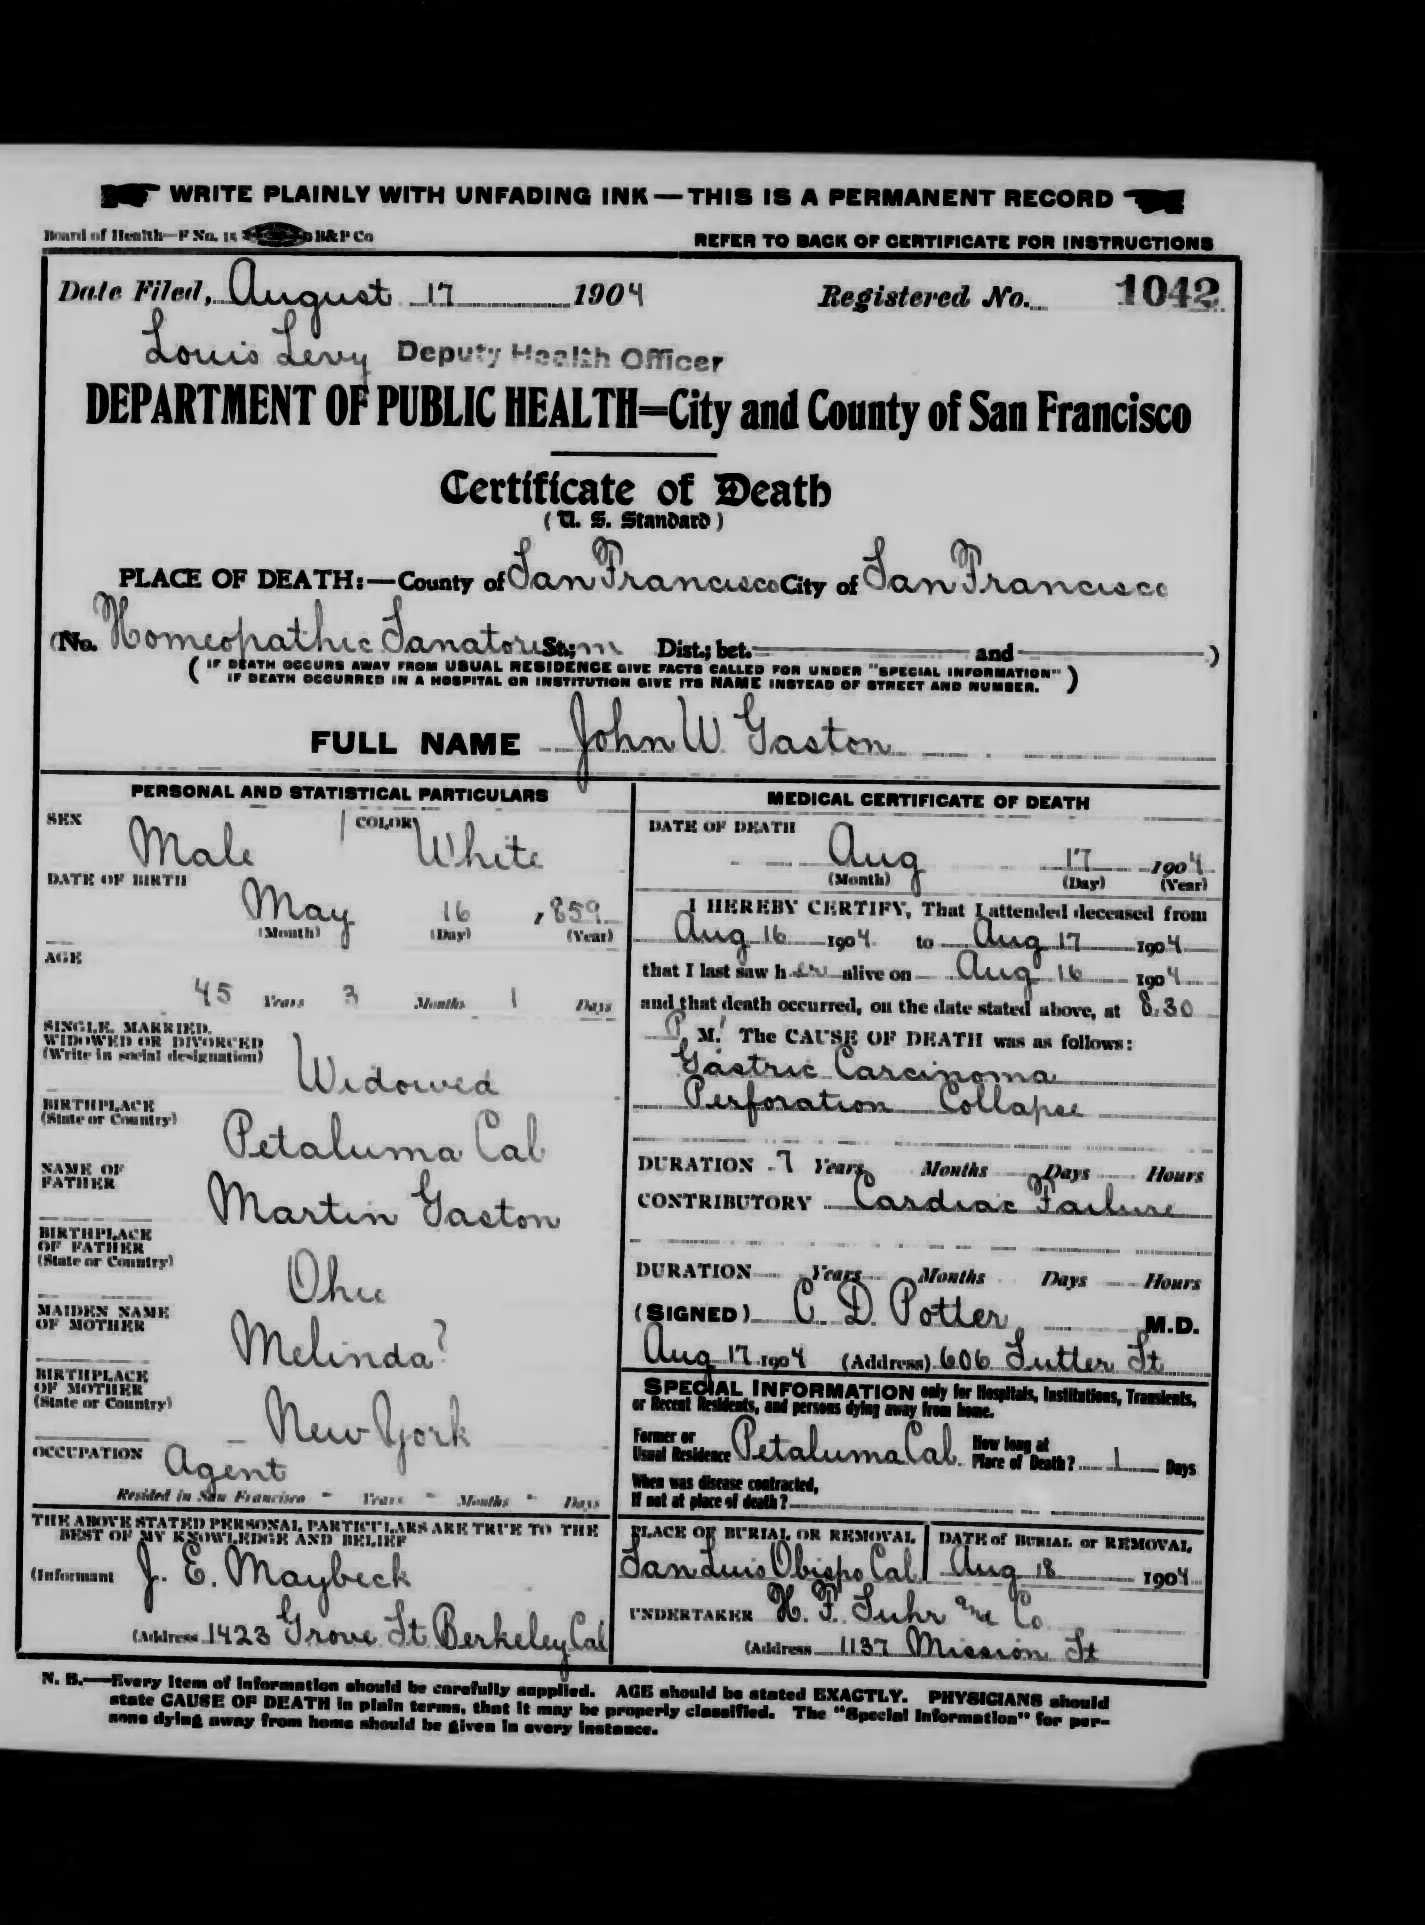 WRITE PLAINLY WITH UNFADING INK — THIS IS A PERMANENT RECORD
Board of Health—F No. 15 B&P Co
REFER TO BACK OF CERTIFICATE FOR INSTRUCTIONS
Date Filed, August 17 1904 Registered No. 1042
Louis Levy Deputy Health Officer
DEPARTMENT OF PUBLIC HEALTH=City and County of San Francisco
Certificate of Death
(U. S. Standard)
PLACE OF DEATH:—County of San Francisco City of San Francisco
(No. Homeopathic Sanatorium St.; Dist.; bet. and )
( IF DEATH OCCURS AWAY FROM USUAL RESIDENCE GIVE FACTS CALLED FOR UNDER "SPECIAL INFORMATION"
IF DEATH OCCURRED IN A HOSPITAL OR INSTITUTION GIVE ITS NAME INSTEAD OF STREET AND NUMBER. )
FULL NAME John W. Gaston
PERSONAL AND STATISTICAL PARTICULARS
SEX Male COLOR White
DATE OF BIRTH
May 16 , 859
(Month) (Day) (Year)
AGE
45 Years 3 Months 1 Days
SINGLE, MARRIED,
WIDOWED OR DIVORCED
(Write in social designation) Widowed
BIRTHPLACE
(State or Country) Petaluma Cal
NAME OF
FATHER Martin Gaston
BIRTHPLACE
OF FATHER
(State or Country) Ohio
MAIDEN NAME
OF MOTHER Melinda ?
BIRTHPLACE
OF MOTHER
(State or Country) New York
OCCUPATION Agent
Resided in San Francisco - Years - Months - Days
THE ABOVE STATED PERSONAL PARTICULARS ARE TRUE TO THE
BEST OF MY KNOWLEDGE AND BELIEF
(Informant J. E. Maybeck
(Address 1423 Grove St Berkeley Cal
MEDICAL CERTIFICATE OF DEATH
DATE OF DEATH
Aug 17 1904
(Month) (Day) (Year)
I HEREBY CERTIFY, That I attended deceased from
Aug 16 1904 to Aug 17 1904
that I last saw h er alive on Aug 16 1904
and that death occurred, on the date stated above, at 8.30
P M. The CAUSE OF DEATH was as follows:
Gastric Carcinoma
Perforation Collapse
DURATION 7 Years Months Days Hours
CONTRIBUTORY Cardiac Failure
DURATION Years Months Days Hours
(SIGNED) C. D. Potter M.D.
Aug 17 1904 (Address) 606 Sutter St
SPECIAL INFORMATION only for Hospitals, Institutions, Transients,
or Recent Residents, and persons dying away from home.
Former or
Usual Residence Petaluma Cal.
How long at
Place of Death? 1 Days
When was disease contracted,
If not at place of death?
PLACE OF BURIAL OR REMOVAL
San Luis Obispo Cal
DATE of BURIAL or REMOVAL
Aug 18 1904
UNDERTAKER H. F. Suhr and Co
(Address 1137 Mission St
N. B.—Every item of information should be carefully supplied. AGE should be stated EXACTLY. PHYSICIANS should
state CAUSE OF DEATH in plain terms, that it may be properly classified. The "Special Information" for per-
sons dying away from home should be given in every instance.